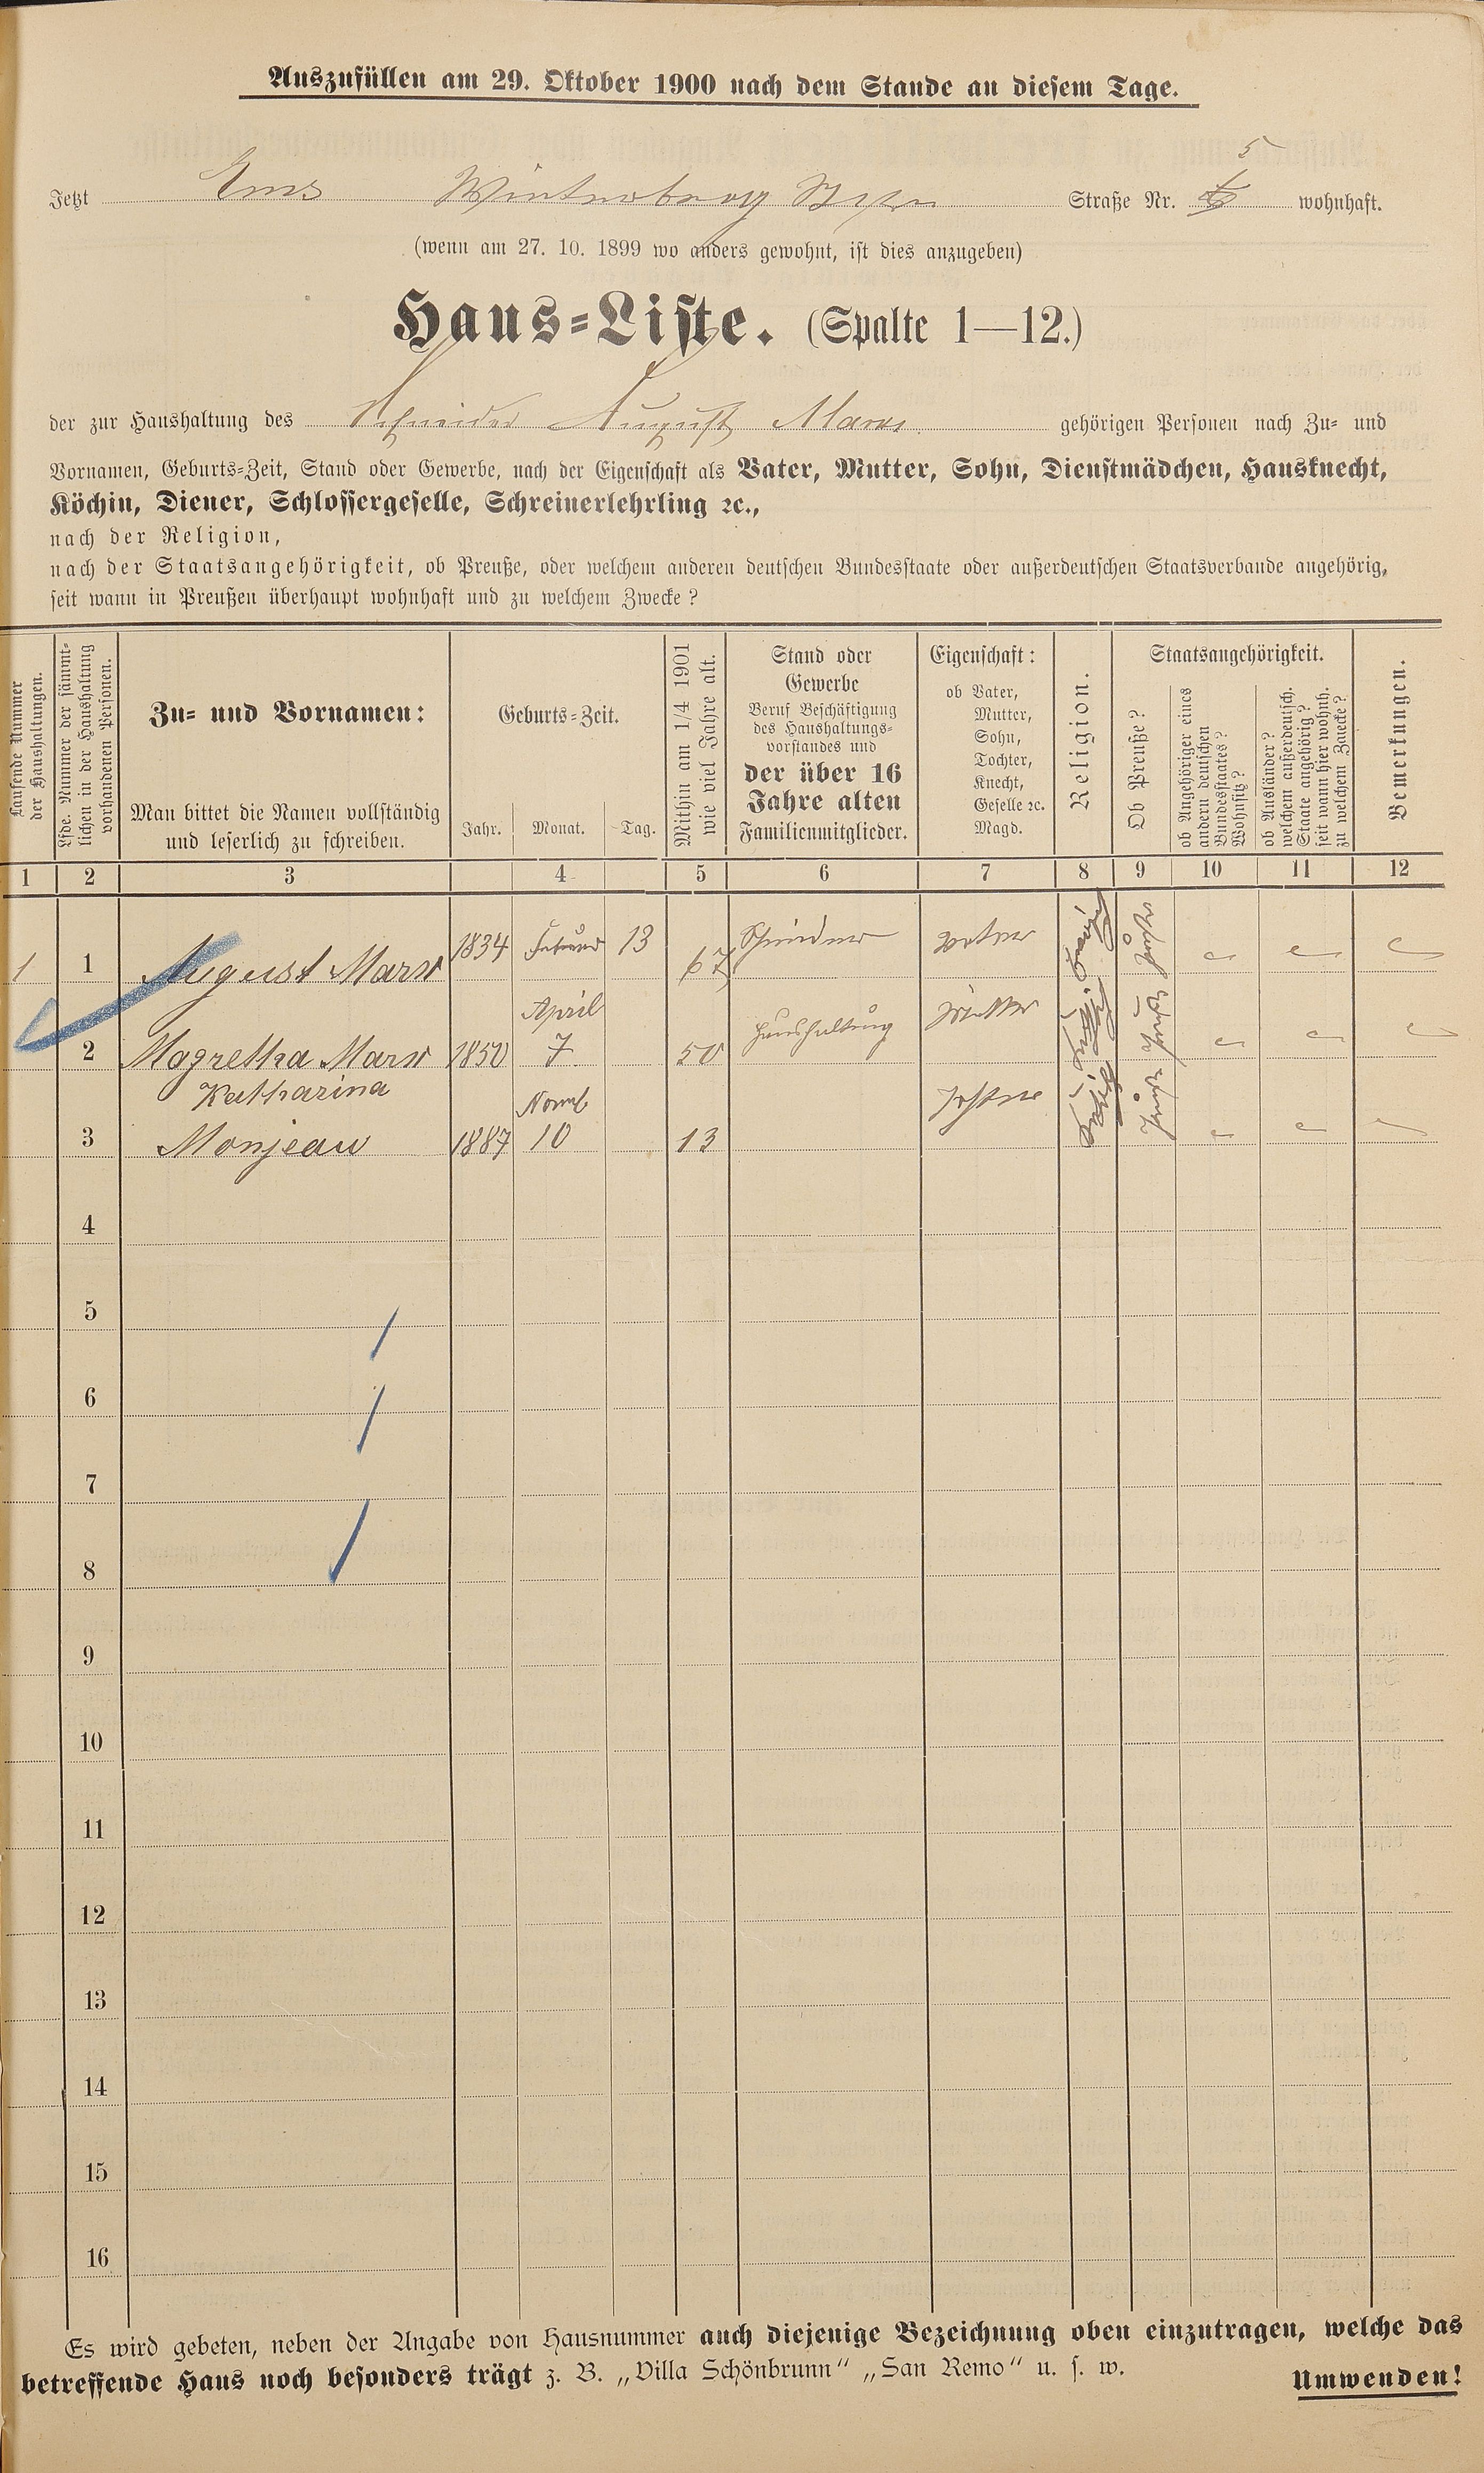 Auszufüllen am 29. Oktober 1900 nach dem Stande an diesem Tage.
5
Jetzt Ems Winterberg Straße Nr. 6 wohnhaft.
(wenn am 27. 10. 1899 wo anders gewohnt, ist dies anzugeben)
Haus-Liste. (Spalte 1—12.)
der zur Haushaltung des Schneider August Marx gehörigen Personen nach Zu- und
Vornamen, Geburts-Zeit, Stand oder Gewerbe, nach der Eigenschaft als Vater, Mutter, Sohn, Dienstmädchen, Hausknecht,
Köchin, Diener, Schlossergeselle, Schreinerlehrling ꝛc.,
nach der Religion,
nach der Staatsangehörigkeit, ob Preuße, oder welchem anderen deutschen Bundesstaate oder außerdeutschen Staatsverbande angehörig,
seit wann in Preußen überhaupt wohnhaft und zu welchem Zwecke?
Laufende Nummer
der Haushaltungen.
Lfde. Nummer der sämmt-
lichen in der Haushaltung
vorhandenen Personen.
Zu- und Vornamen:
Man bittet die Namen vollständig
und leserlich zu schreiben.
Geburts-Zeit.
Jahr. Monat. Tag.
Mithin am 1/4 1901
wie viel Jahre alt.
Stand oder
Gewerbe
Beruf Beschäftigung
des Haushaltungs-
vorstandes und
der über 16
Jahre alten
Familienmitglieder.
Eigenschaft:
ob Vater,
Mutter,
Sohn,
Tochter,
Knecht,
Geselle ꝛc.
Magd.
Religion.
Staatsangehörigkeit.
Ob Preuße?
ob Angehöriger eines
andern deutschen
Bundesstaates?
Wohnsitz?
ob Ausländer?
welchem außerdeutsch.
Staate angehörig?
seit wann hier wohnh.
zu welchem Zwecke?
Bemerkungen.
1 2 3 4 5 6 7 8 9 10 11 12
1 1 August Marx 1834 Februar 13 67 Schneider Vater
April
2 Magretha Marx 1850 7 50 Haushaltung Mutter
Katharina Novmb Tochter
3 Monjeau 1887 10 13
4
5
6
7
8
9
10
11
12
13
14
15
16
Es wird gebeten, neben der Angabe von Hausnummer auch diejenige Bezeichnung oben einzutragen, welche das
betreffende Haus noch besonders trägt z. B. „Villa Schönbrunn“ „San Remo“ u. s. w.
Umwenden!